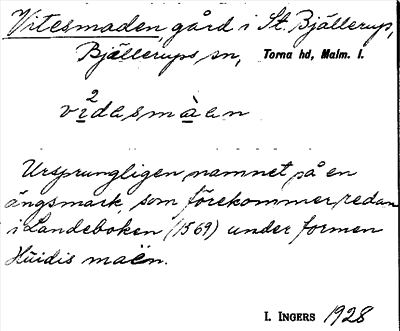 Vitesmaden, gård i St. Bjällerup,
Bjällerups sn, Torna hd, Malm. l.
vi²dəsmàən
Ursprungligen namnet på en
ängsmark, som förekommer redan
i Landeboken (1569) under formen
Huidis maën.
I. INGERS 1928